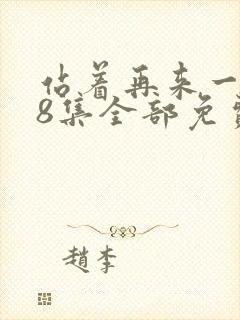 站着再来一
8集全部免费
趙李